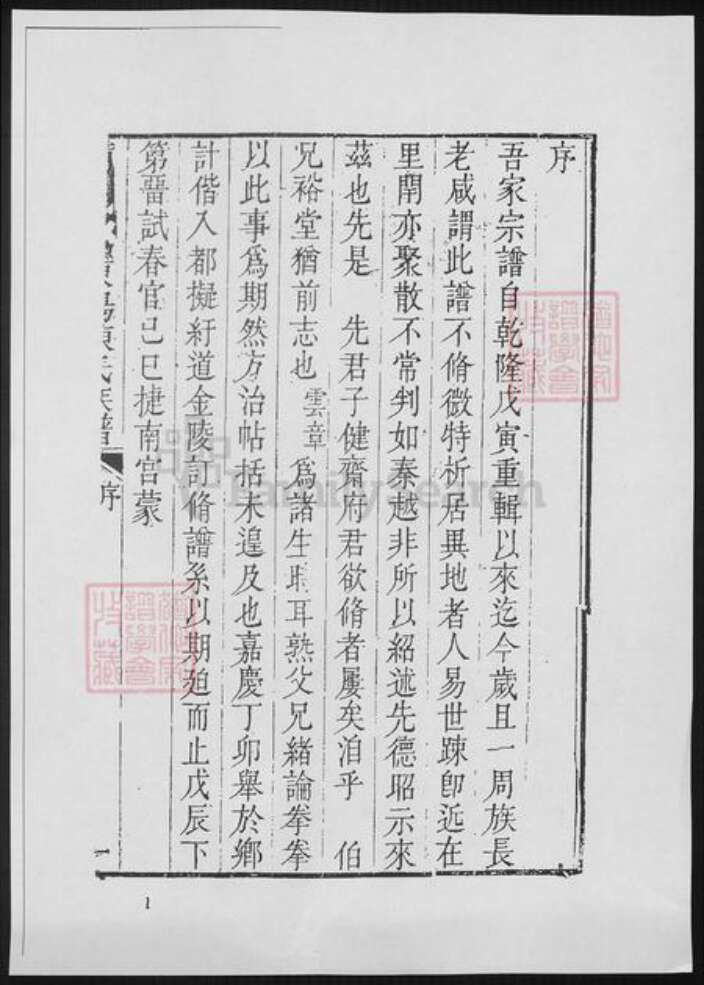 序
吾家宗譜自乾隆戊寅重輯以來迄今歲且一周族長
老咸謂此譜不脩微特析居異地者人易世踈卽近在
里閈亦聚散不常判如秦越非所以紹述先德昭示來
茲也先是 先君子健齋府君欲脩者屢矣洎乎 伯
兄裕堂猶前志也 雲章 爲諸生時耳熟父兄緒論拳拳
以此事爲期然方治帖括未遑及也嘉慶丁卯舉於鄉
計偕入都擬紆道金陵訂脩譜系以期迫而止戊辰下
第畱試春官己巳捷南宮蒙
陳氏族譜
序
一
1
FamilySearch
譜學會
收藏
譜學會
收藏